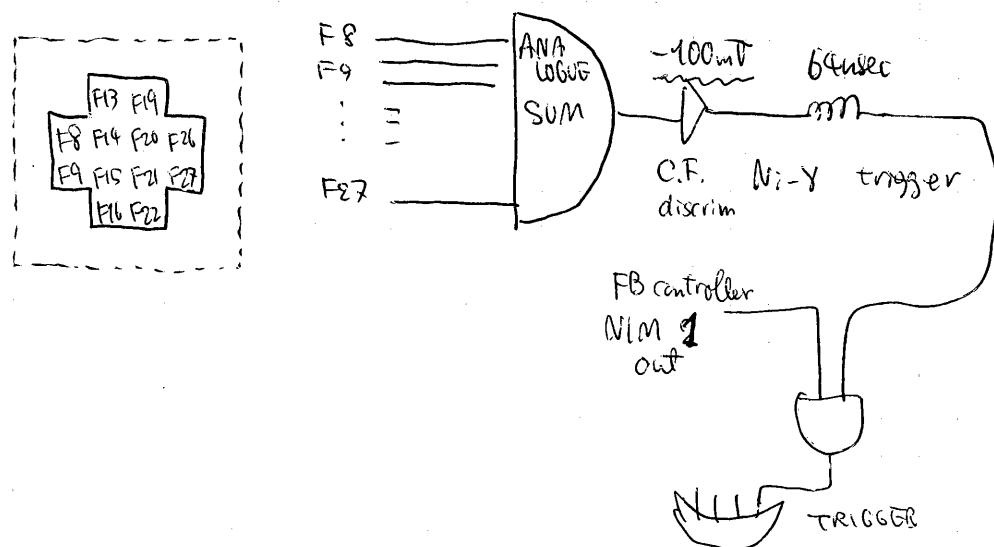 F13 F19
F8 F14 F20 F26
F9 F15 F21 F27
F16 F22
F8
F9
F27
ANA
LOGUE
SUM
-100mV
64nsec
C.F.
discrim
Ni-γ trigger
FB controller
NIM 1
out
TRIGGER